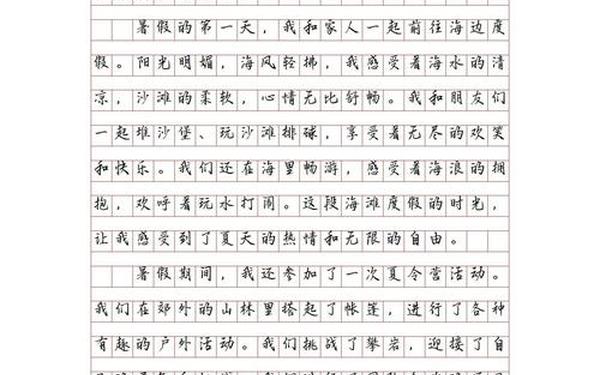 暑假的第一天，我和家人一起前往海边度
假。阳光明媚，海风轻拂，我感受着海水的清
凉，沙滩的柔软，心情无比舒畅。我和朋友们
一起堆沙堡、玩沙滩排球，享受着无尽的欢笑
和快乐。我们还在海里畅游，感受着海浪的拥
抱，欢呼着玩水打闹。这段海滩度假的时光，
让我感受到了夏天的热情和无限的自由。
暑假期间，我还参加了一次夏令营活动。
我们在郊外的山林里搭起了帐篷，进行了各种
有趣的户外活动。我们挑战了攀岩，迎接了自